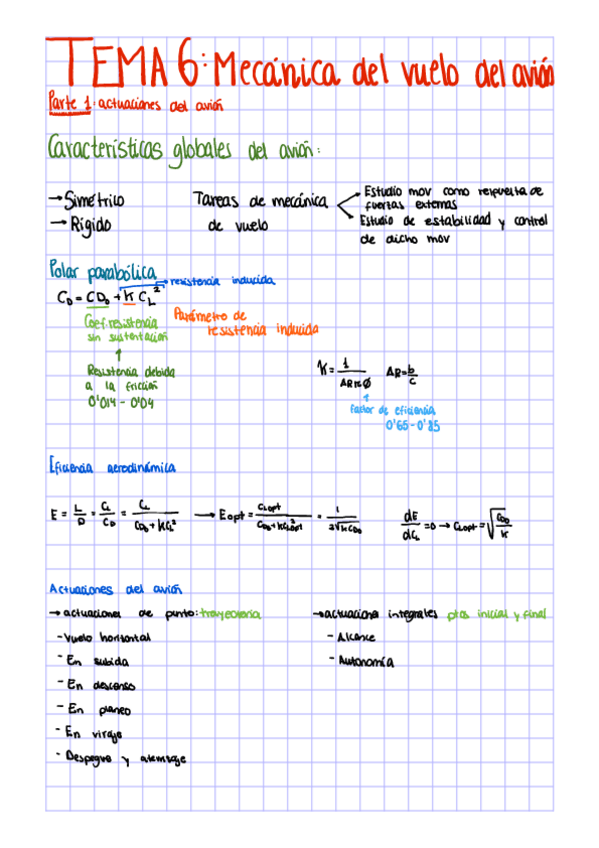 TEMA 6: Mecánica del vuelo del avión
Parte 1: actuaciones del avión
Características globales del avión:
→ Simétrico
→ Rígido
Tareas de mecánica
de vuelo
Estudio mov como respuesta de
fuerzas externas
Estudio de estabilidad y control
de dicho mov
Polar parabólica
→ resistencia inducida
C_D = C_D0 + K C_L²
Coef. resistencia
sin sustentación
Parámetro de
resistencia inducida
↑
Resistencia debida
a la fricción
0'014 - 0'04
K = 1/(AR π ϕ) AR = b/c
↑
factor de eficiencia
0'65 - 0'85
Eficiencia aerodinámica
E = L/D = C_L/C_D = C_L/(C_D0 + K C_L²) → E opt = C_L opt/(C_D0 + K C_L opt²) = 1/(2√(K C_D0)) dE/dC_L = 0 → C_L opt = √(C_D0/K)
Actuaciones del avión
→ actuaciones de punto: trayectoria
- Vuelo horizontal
- En subida
- En descenso
- En planeo
- En viraje
- Despegue y aterrizaje
→ actuaciones integrales ptos inicial y final
- Alcance
- Autonomía